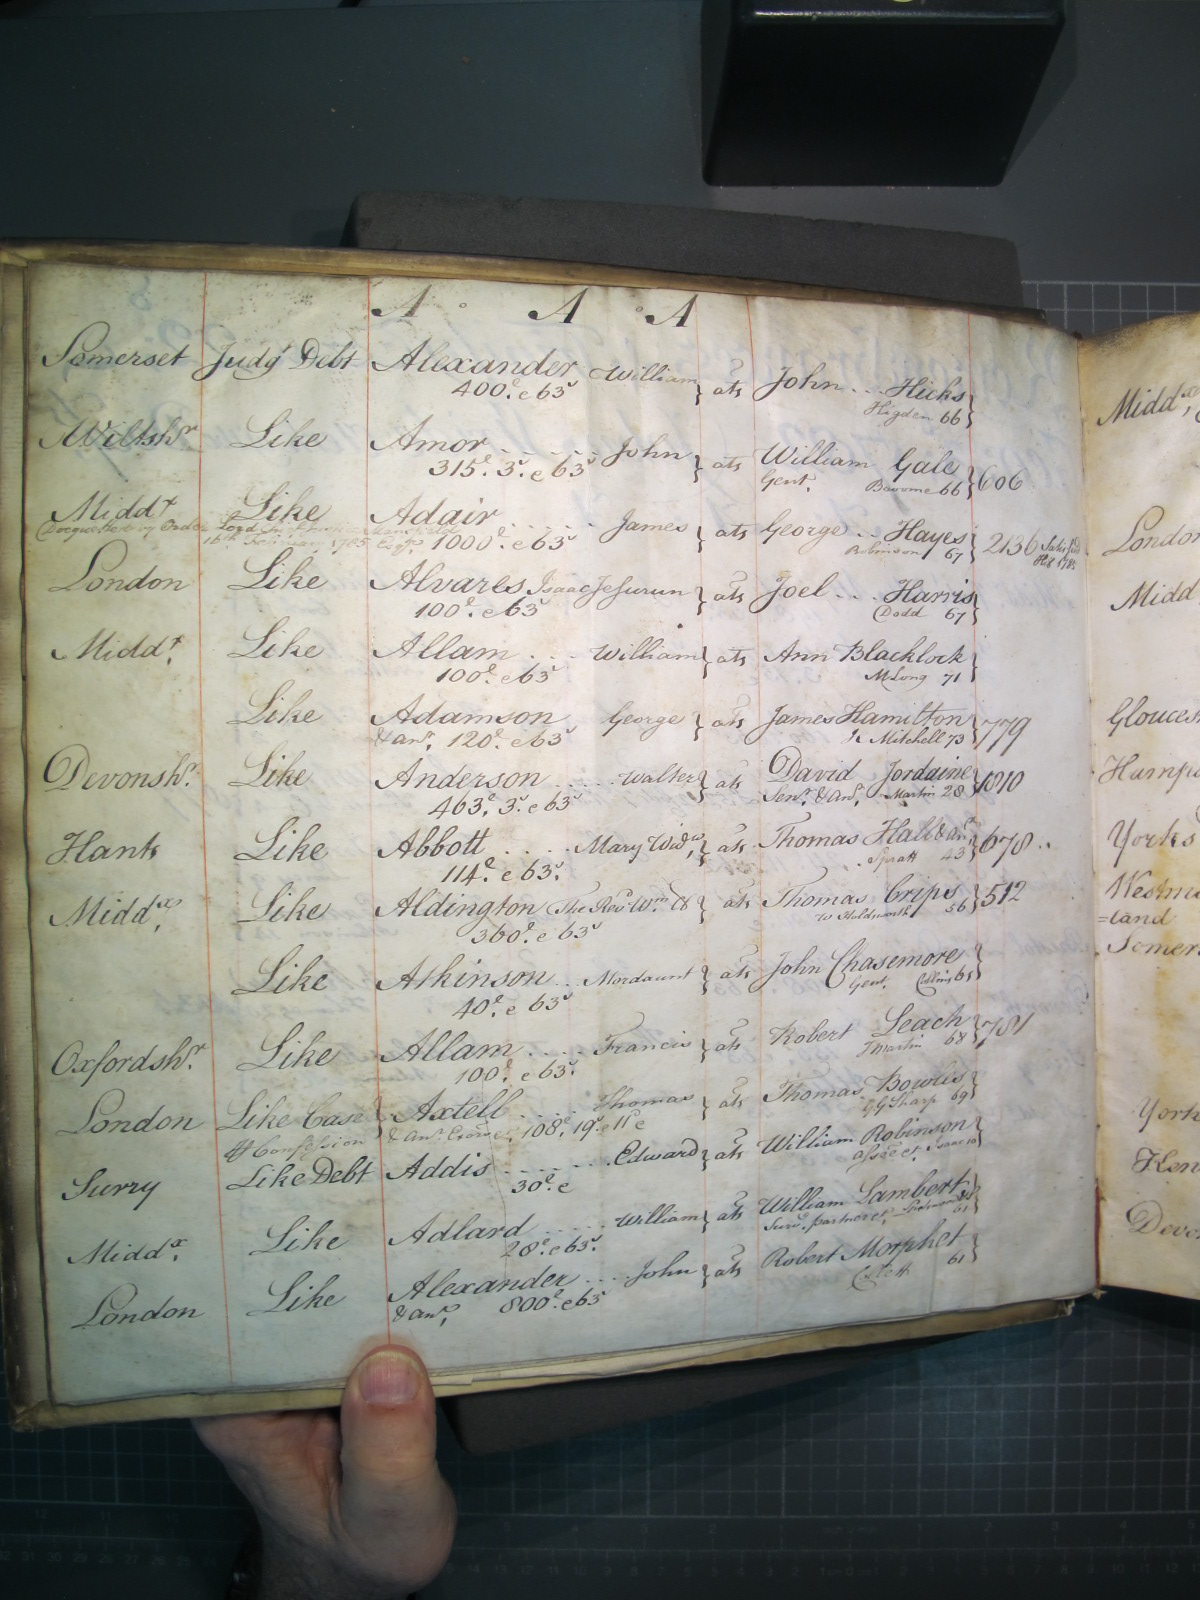 A A A
Somerset Judgt Debt Alexander William } ats John Hicks }
400£. e 63s Higden 66
Wiltshr Like Amor John } ats William Gale } 606
315£. 3s. e 63s Gent. 66
Middx Like Adair James ats George Hayes } 2136
1000£. e 63s Robinson 67
London Like Alvares Isaac Jesurun } ats Joel Harris }
100£. e 63s Dodd 67
Middx. Like Allam William } ats Ann Blacklock }
100£. e 63s M Long 71
Like Adamson George } ats James Hamilton } 779
& anr. 120£. e 63s Mitchell 73
Devonshr. Like Anderson Walter } ats David Jordaine } 1010
463£. 3s. e 63s Senr. & anr. Martin 28
Hants Like Abbott Mary Widw. } ats Thomas Hall & anr } 678
114£. e 63s. Spratt 43
Middx. Like Aldington The Revd Wm ats Thomas Crips } 512
360£. e 63s W Holdsworth 56
Like Atkinson Mordaunt } ats John Chasemore }
40£. e 63s Gent. Collins 65
Oxfordshr. Like Allam Francis } ats Robert Leach } 781
100£. e 63s. T Martin 68
London Like Case Axtell Thomas ats Thomas Bowles }
Confession & anr. 108£. 19s. e 11d e GG Sharp 69
Surry Like Debt Addis Edward } ats William Robinson
30£. e
Middx. Like Adlard William } ats William Lambert }
28£. e 63s. Survg. partner &c. 61
London Like Alexander John } ats Robert Morphet }
& anr. 800£. e 63s 61
Middx.
London
Midd
Glouces
Hamp
Yorks
Westmo
=land
Somers
York
Ken
Devo